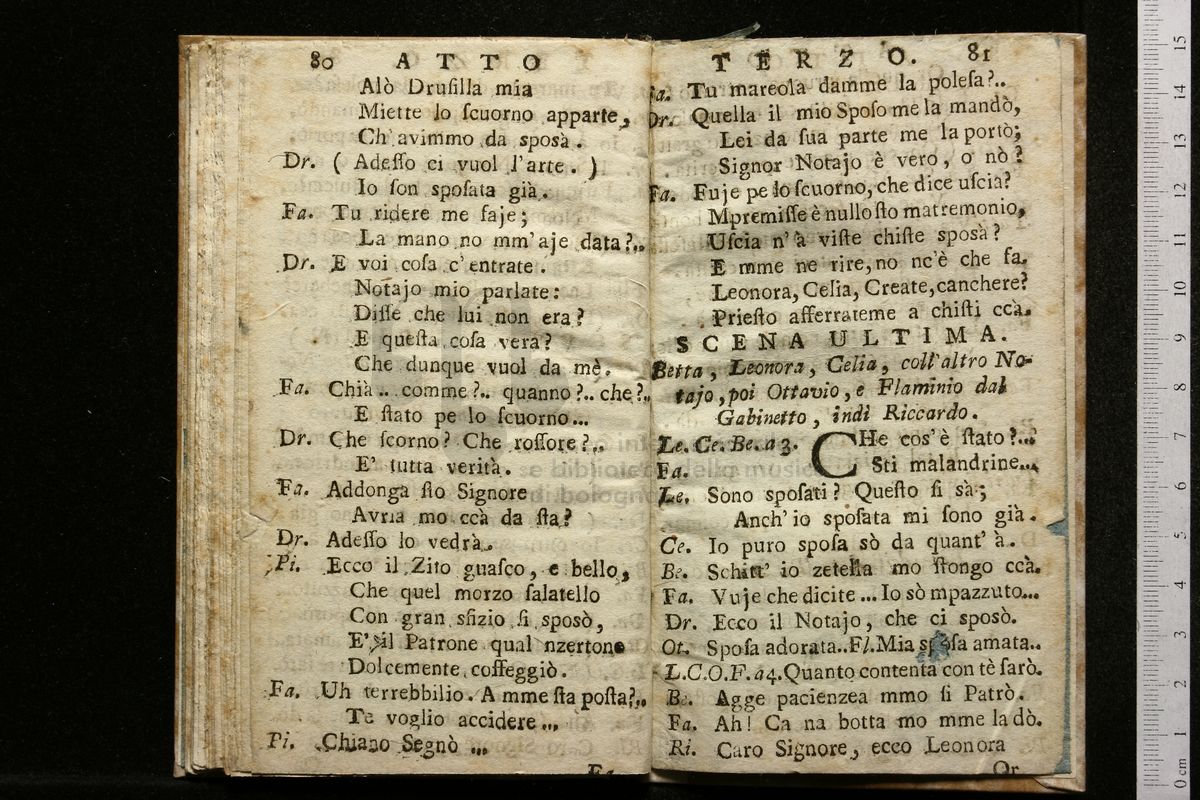 80 ATTO
Alò Druſilla mia
Miette lo ſcuorno apparte,
Ch' avimmo da sposà.
Dr. ( Adeſſo ci vuol l'arte. )
Io ſon spoſata già.
Fa. Tu ridere me faje;
La mano no mm'aje data?..
Dr. E voi coſa c'entrate.
Notajo mio parlate:
Diſſe che lui non era?
E queſta coſa vera?
Che dunque vuol da mè.
Fa. Chià.. comme?.. quanno?.. che?..
E ſtato pe lo ſcuorno...
Dr. Che scorno? Che roſſore?..
E' tutta verità.
Fa. Addonga ſto Signore
Avria mo ccà da ſta?
Dr. Adeſſo lo vedrà.
Pi. Ecco il Zito guaſco, e bello,
Che quel morzo ſalatello
Con gran sfizio ſi sposò,
E' il Patrone qual nzertone
Dolcemente coffeggiò.
Fa. Uh terrebbilio. A mme ſta poſta?..
Te voglio accidere...
Pi. Chiano Segnò ...
Fa
TERZO. 81
Fa. Tu mareola damme la poleſa?..
Dr. Quella il mio Spoſo me la mandò,
Lei da ſua parte me la portò;
Signor Notajo è vero, o nò?
Fa. Fuje pe lo ſcuorno, che dice uſcia?
Mpremiſſe è nullo ſto matremonio,
Uſcia n'à viſte chiſte sposà?
E mme ne rire, no nc'è che fa.
Leonora, Celia, Create, canchere?
Prieſto afferrateme a chiſti ccà.
SCENA ULTIMA.
Betta, Leonora, Celia, coll'altro No-
tajo, poi Ottavio, e Flaminio dal
Gabinetto, indi Riccardo.
Le. Ce. Be. a 3. CHe cos'è ſtato?...
Fa. Sti malandrine...
Le. Sono spoſati? Queſto ſi sà;
Anch'io spoſata mi ſono già.
Ce. Io puro spoſa sò da quant'à.
Be. Schitt' io zetella mo ſtongo ccà.
Fa. Vuje che dicite... Io sò mpazzuto...
Dr. Ecco il Notajo, che ci sposò.
Ot. Spoſa adorata..Fl.Mia spoſa amata..
L.C.O.F.a4.Quanto contenta con tè ſarò.
Be. Agge pacienzea mmo ſi Patrò.
Fa. Ah! Ca na botta mo mme la dò.
Ri. Caro Signore, ecco Leonora
Or